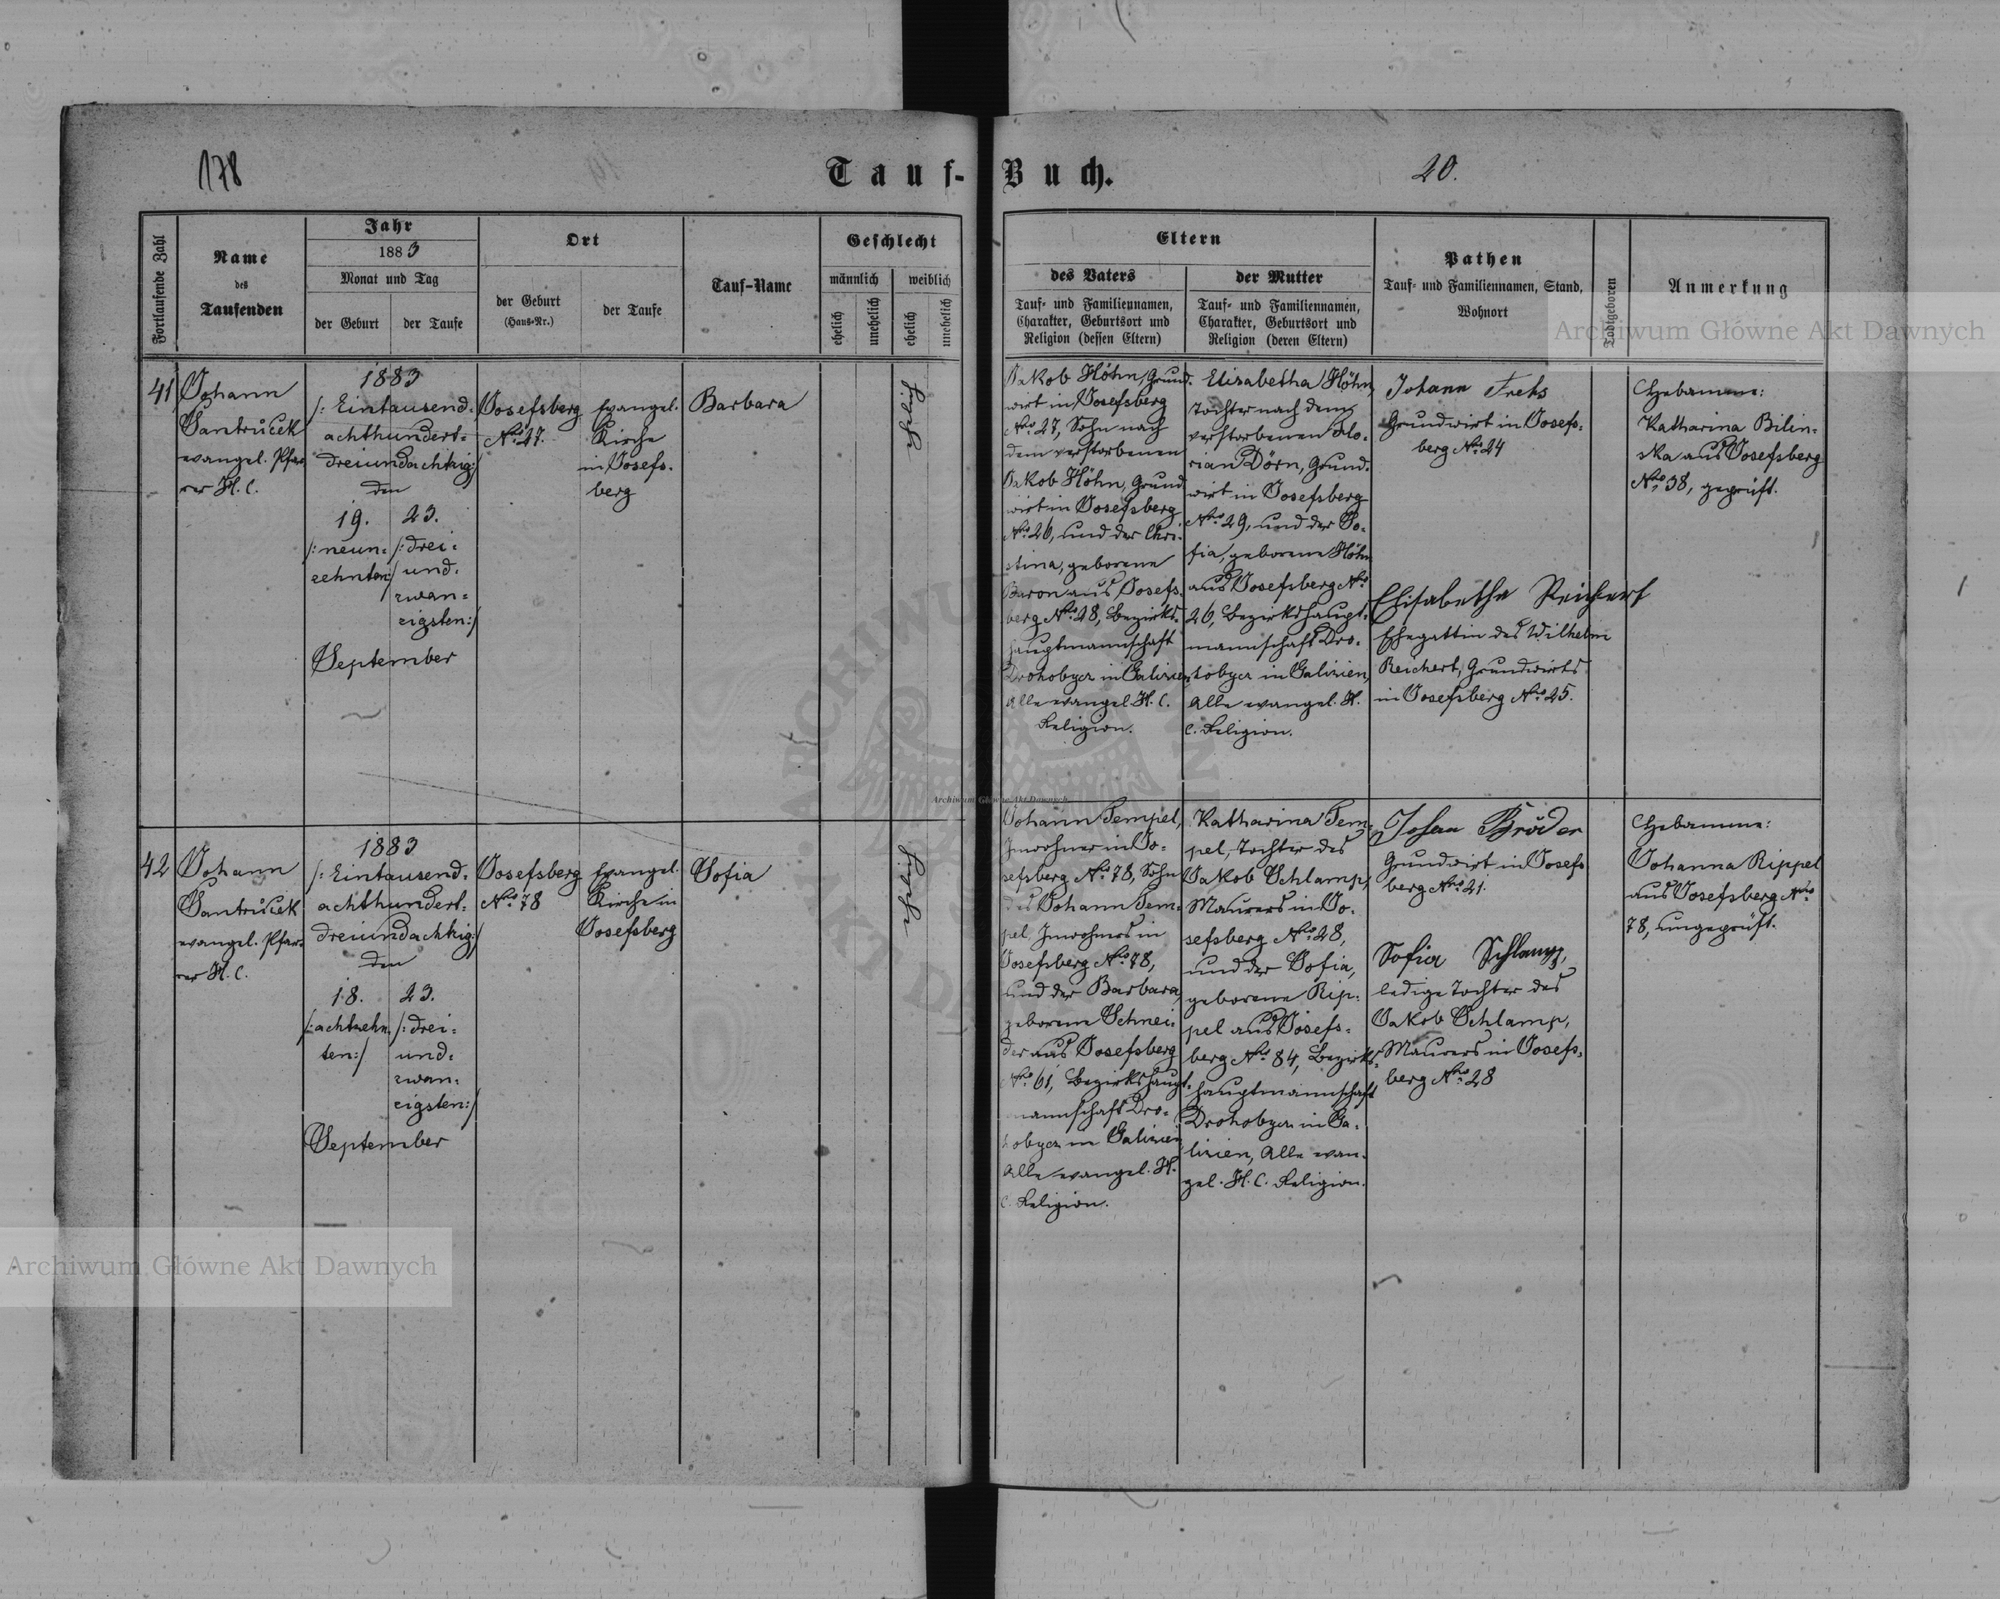 178
Tauf-Buch.
20.
Fortlaufende Zahl
Name
des
Taufenden
Jahr
1883
Monat und Tag
der Geburt
der Taufe
Ort
der Geburt
(Haus-Nr.)
der Taufe
Tauf-Name
Geschlecht
männlich
weiblich
ehelich
unehelich
ehelich
unehelich
Eltern
des Vaters
Tauf- und Familiennamen,
Charakter, Geburtsort und
Religion (dessen Eltern)
der Mutter
Tauf- und Familiennamen,
Charakter, Geburtsort und
Religion (deren Eltern)
Pathen
Tauf- und Familiennamen, Stand,
Wohnort
Todtgeboren
Anmerkung
41
Johann
Santrůček
evangel. Pfar-
rer H. C.
1883
/: Eintausend-
achthundert-
dreiundachtzig:/
den
19.
/: neun-
zehnten:/
23.
/: drei-
und-
zwan-
zigsten:/
September
Josefsberg
Nro. 27.
Evangel.
Kirche
in Josefs-
berg
Barbara
ehelich
Jakob Höhn, Grund-
wirt in Josefsberg
Nro. 27, Sohn nach
dem verstorbenen
Jakob Höhn, Grund-
wirt in Josefsberg
Nro. 26, und der Chri-
stina, geborene
Baron aus Josefs-
berg Nro. 28, Bezirks-
hauptmannschaft
Drohobycz in Galizien,
Alle evangel. H. C.
Religion.
Elisabetha Höhn,
Tochter nach dem
verstorbenen Flo-
rian Dörn, Grund-
wirt in Josefsberg
Nro. 29, und der So-
fia, geborene Höhn
aus Josefsberg Nro.
26, Bezirkshaupt-
mannschaft Dro-
hobycz in Galizien,
Alle evangel. H.
C. Religion.
Johann
Grundwirt in Josefs-
berg Nro. 24
Elisabetha Reichert
Ehegattin des Wilhelm
Reichert, Grundwirts
in Josefsberg Nro. 25.
Hebamme:
Katharina Bilin-
ska aus Josefsberg
Nro. 38, geprüft.
42
Johann
Santrůček
evangel. Pfar-
rer H. C.
1883
/: Eintausend-
achthundert-
dreiundachtzig:/
den
18.
/: achtzehn-
ten:/
23.
/: drei-
und-
zwan-
zigsten:/
September
Josefsberg
Nro. 78
Evangel.
Kirche in
Josefsberg
Sofia
ehelich
Johann Tempel,
Inwohner in Jo-
sefsberg Nro. 78, Sohn
des Johann Tem-
pel, Inwohners in
Josefsberg Nro. 78,
und der Barbara,
geborene Schnei-
der aus Josefsberg
Nro. 61, Bezirkshaupt-
mannschaft Dro-
hobycz in Galizien,
Alle evangel. H.
C. Religion.
Katharina Tem-
pel, Tochter des
Jakob Schlamp,
Maurers in Jo-
sefsberg Nro. 28,
und der Sofia,
geborene Rip-
pel aus Josefs-
berg Nro. 84, Bezirks-
hauptmannschaft
Drohobycz in Ga-
lizien, Alle evan-
gel. H. C. Religion.
Johan Bröder
Grundwirt in Josefs-
berg Nro. 21.
Sofia Schlamp,
ledige Tochter des
Jakob Schlamp,
Maurers in Josefs-
berg Nro. 28
Hebamme:
Johanna Rippel
aus Josefsberg Nro.
78, ungeprüft.
Archiwum Główne Akt Dawnych
Archiwum Główne Akt Dawnych
Archiwum Główne Akt Dawnych